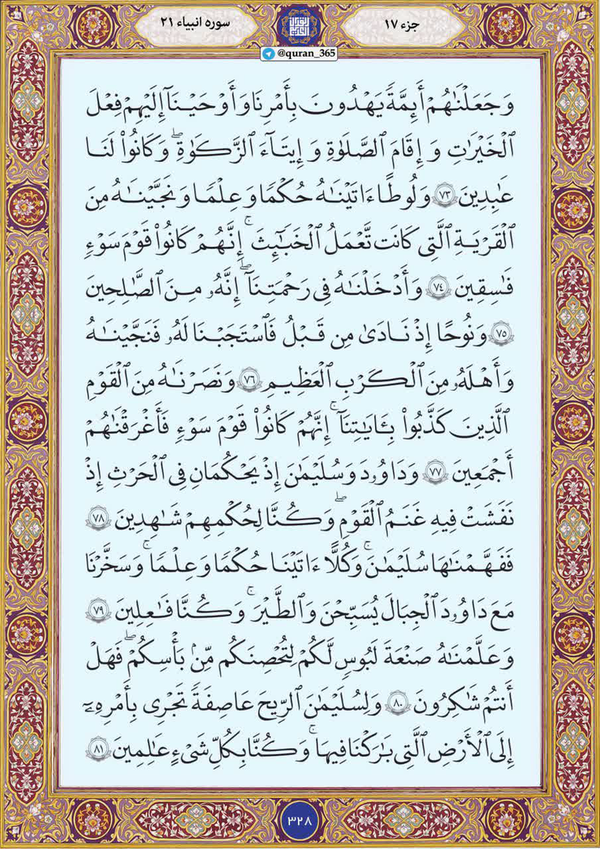 جزء ۱۷
سوره انبیاء ۲۱
@quran_365
وَجَعَلْنَٰهُمْ أَئِمَّةً يَهْدُونَ بِأَمْرِنَا وَأَوْحَيْنَآ إِلَيْهِمْ فِعْلَ
ٱلْخَيْرَٰتِ وَإِقَامَ ٱلصَّلَوٰةِ وَإِيتَآءَ ٱلزَّكَوٰةِ ۖ وَكَانُوا۟ لَنَا
عَٰبِدِينَ ۷۳ وَلُوطًا ءَاتَيْنَٰهُ حُكْمًا وَعِلْمًا وَنَجَّيْنَٰهُ مِنَ
ٱلْقَرْيَةِ ٱلَّتِى كَانَت تَّعْمَلُ ٱلْخَبَٰٓئِثَ ۗ إِنَّهُمْ كَانُوا۟ قَوْمَ سَوْءٍ
فَٰسِقِينَ ۷۴ وَأَدْخَلْنَٰهُ فِى رَحْمَتِنَآ ۖ إِنَّهُۥ مِنَ ٱلصَّٰلِحِينَ
۷۵ وَنُوحًا إِذْ نَادَىٰ مِن قَبْلُ فَٱسْتَجَبْنَا لَهُۥ فَنَجَّيْنَٰهُ
وَأَهْلَهُۥ مِنَ ٱلْكَرْبِ ٱلْعَظِيمِ ۷۶ وَنَصَرْنَٰهُ مِنَ ٱلْقَوْمِ
ٱلَّذِينَ كَذَّبُوا۟ بِـَٔايَٰتِنَآ ۚ إِنَّهُمْ كَانُوا۟ قَوْمَ سَوْءٍ فَأَغْرَقْنَٰهُمْ
أَجْمَعِينَ ۷۷ وَدَاوُۥدَ وَسُلَيْمَٰنَ إِذْ يَحْكُمَانِ فِى ٱلْحَرْثِ إِذْ
نَفَشَتْ فِيهِ غَنَمُ ٱلْقَوْمِ ۖ وَكُنَّا لِحُكْمِهِمْ شَٰهِدِينَ ۷۸
فَفَهَّمْنَٰهَا سُلَيْمَٰنَ ۚ وَكُلًّا ءَاتَيْنَا حُكْمًا وَعِلْمًا ۚ وَسَخَّرْنَا
مَعَ دَاوُۥدَ ٱلْجِبَالَ يُسَبِّحْنَ وَٱلطَّيْرَ ۚ وَكُنَّا فَٰعِلِينَ ۷۹
وَعَلَّمْنَٰهُ صَنْعَةَ لَبُوسٍ لَّكُمْ لِتُحْصِنَكُم مِّنۢ بَأْسِكُمْ ۖ فَهَلْ
أَنتُمْ شَٰكِرُونَ ۸۰ وَلِسُلَيْمَٰنَ ٱلرِّيحَ عَاصِفَةً تَجْرِى بِأَمْرِهِۦٓ
إِلَى ٱلْأَرْضِ ٱلَّتِى بَٰرَكْنَا فِيهَا ۚ وَكُنَّا بِكُلِّ شَىْءٍ عَٰلِمِينَ ۸۱
۳۲۸